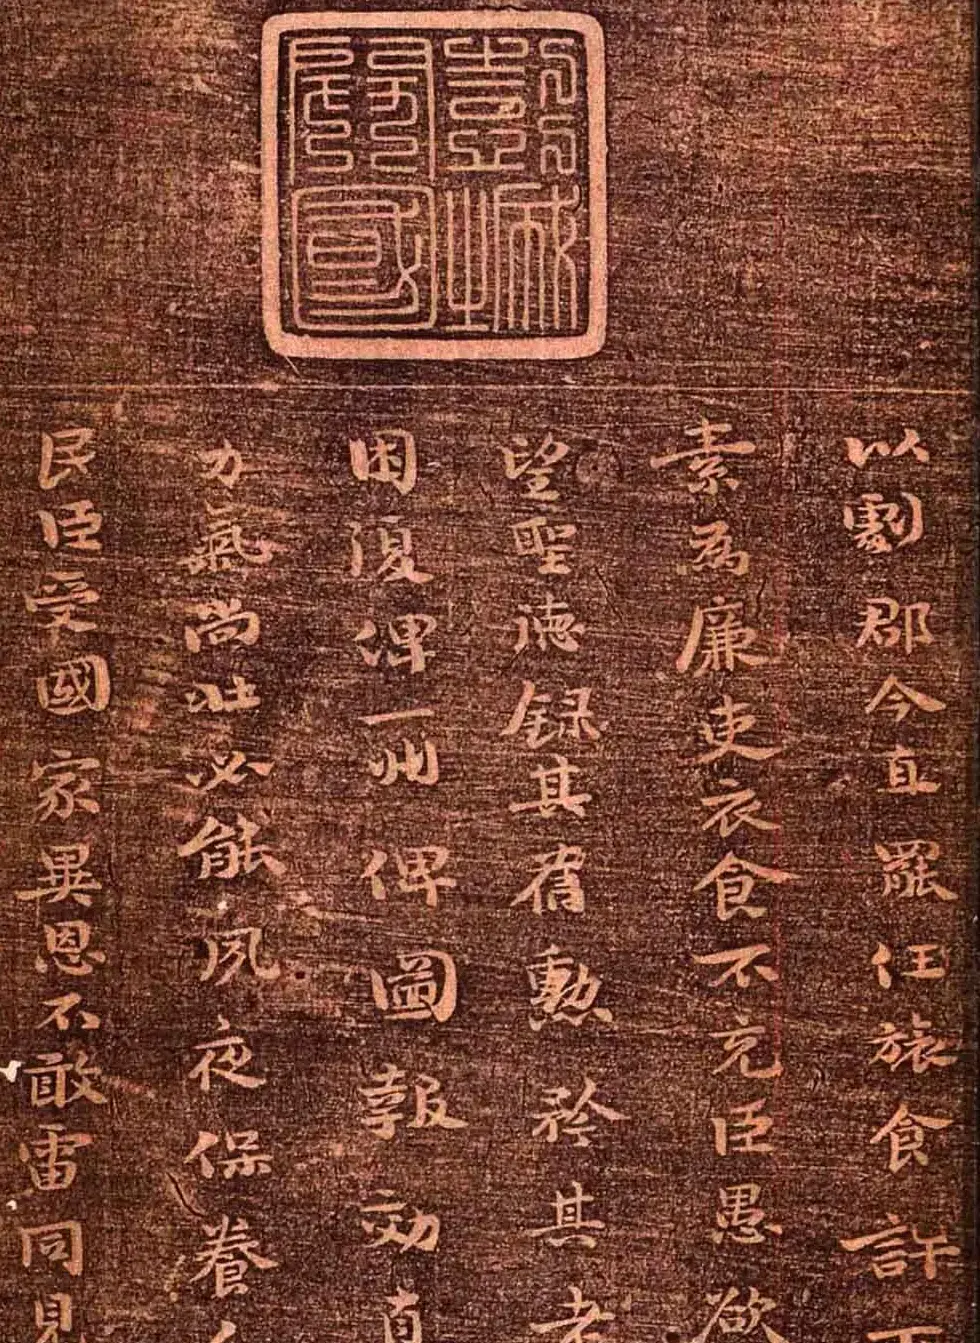 以劇郡今直罷任旅食許
素為廉吏衣食不充臣愚欲
望聖德錄其舊勳矜其老
困復俾一州俾圖報効直
力氣尚壯必能夙夜保養人
民臣受國家異恩不敢雷同見